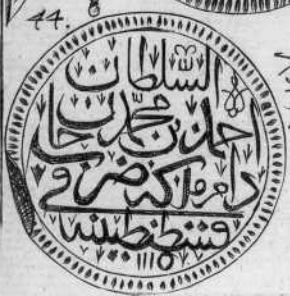 44.
السلطان
احمد بن محمد خان
دام ملكه ضرب في
قسطنطينيه
١١١٥